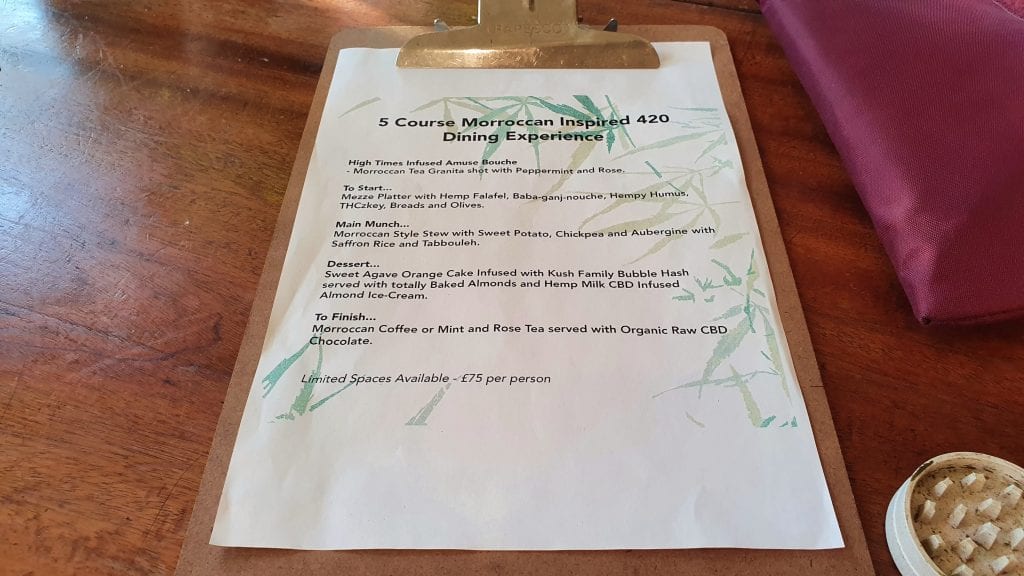 5 Course Morroccan Inspired 420
Dining Experience
High Times Infused Amuse Bouche
- Morroccan Tea Granita shot with Peppermint and Rose.
To Start...
Mezze Platter with Hemp Falafel, Baba-ganj-nouche, Hempy Humus,
THCzkey, Breads and Olives.
Main Munch...
Morroccan Style Stew with Sweet Potato, Chickpea and Aubergine with
Saffron Rice and Tabbouleh.
Dessert...
Sweet Agave Orange Cake Infused with Kush Family Bubble Hash
served with totally Baked Almonds and Hemp Milk CBD Infused
Almond Ice-Cream.
To Finish...
Morroccan Coffee or Mint and Rose Tea served with Organic Raw CBD
Chocolate.
Limited Spaces Available - £75 per person